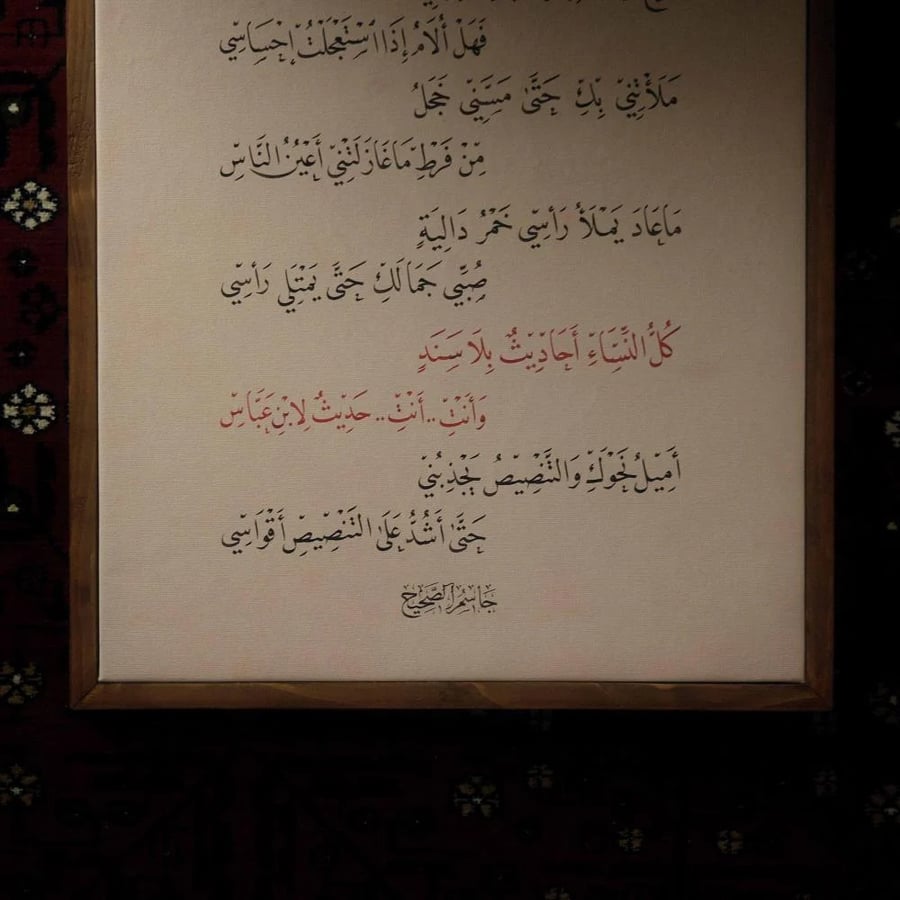 فَهَلْ أُلَامُ إِذَا اسْتَعْجَلْتُ إِحْسَاسِي
مَلَأْتِنِي بِكِ حَتَّى مَسَّنِي خَجَلُ
مِنْ فَرْطِ مَا غَازَلَتْنِي أَعْيُنُ النَّاسِ
مَا عَادَ يَمْلَأُ رَأْسِي خَمْرُ دَالِيَةٍ
صُبِّي جَمَالَكِ حَتَّى يَمْتَلِي رَأْسِي
كُلُّ النِّسَاءِ أَحَادِيثٌ بِلَا سَنَدٍ
وَأَنْتِ.. أَنْتِ.. حَدِيثٌ لِابْنِ عَبَّاسِ
أَمِيلُ نَحْوَكِ وَالتَّنْصِيصُ يَجْذِبُنِي
حَتَّى أَشُدُّ عَلَى التَّنْصِيصِ أَقْوَاسِي
جَاسِمُ الصَّحِيح